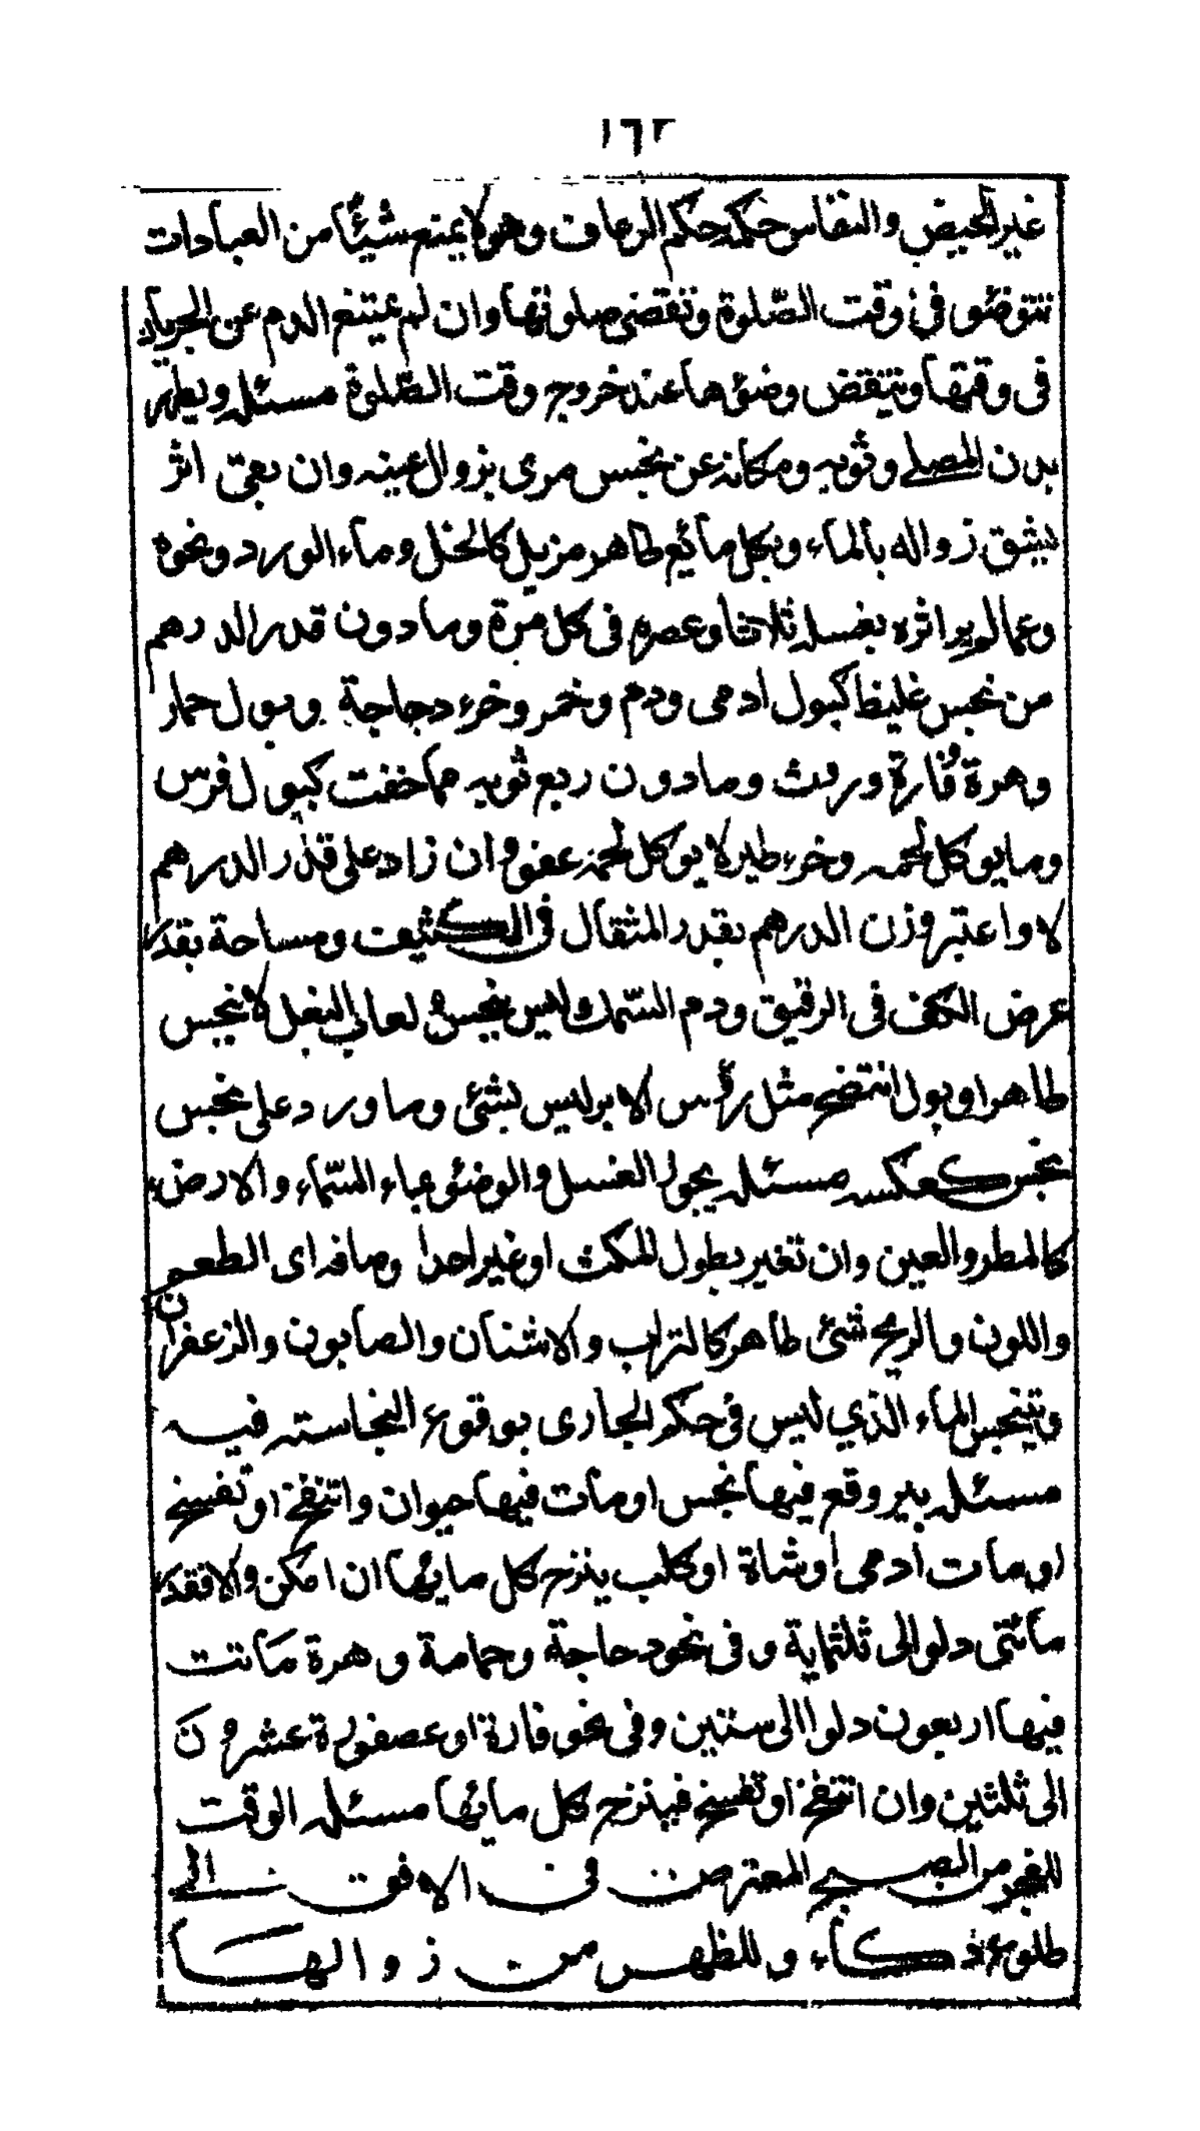 ١٦٢
غير الحيض والنفاس حكمه حكم الرعاف وهو لا يمنع شيئًا من العبادات
تتوضئو في وقت الصّلوة وتقضى صلوتها وان لم يمتنع الدم عن الجريان
فى وقتها وينتقض وضئوها عند خروج وقت الصّلوة مسئله ويطهر
بدن المصلے وثوبه ومكانه عن نجس مرى بزوال عينه وان بقى اثر
يشق زواله بالماء وبكل مائع طاهر مزيل كالخل وماء الورد ونحوه
وعما لم ير اثره بغسله ثلاثا وعصره فى كل مرة وما دون قدر الدرهم
من نجس غليظ كبول ادمى ودم وخمر وخرء دجاجة وبول حمار
وهرة وفارة وروث وما دون ربع ثوبه مما خفت كبول فرس
وما يوكل لحمه وخرء طير لا يوكل لحمه عفو وان زاد على قدر الدرهم
لا واعتبر وزن الدرهم بقدر المثقال فى الكثيف ومساحة بقدر
عرض الكف فى الرقيق ودم السّمك وليس بنجس لعاب البغل لا ينجس
طاهرا وبول انتضح مثل رؤس الابر ليس بشئ وما ورد على نجس
نجس كعكسه مسئله يجوز الغسل والوضئو بماء السّماء والارض
كالمطر والعين وان تغير بطول المكث او غير احدا وصافه اى الطعم
واللون والريح شئ طاهر كالتراب والاشنان والصابون والزعفران
ويتنجس الماء الذي ليس فى حكم الجارى بوقوع النجاسته فيه
مسئله بير وقع فيها نجس او مات فيها حيوان وانتفخ او تفسخ
او مات ادمى او شاة او كلب ينزح كل مائها ان امكن والا فقدر
مائتى دلو الى ثلثماية وفى نحو دجاجة وحمامة وهرة ماتت
فيها اربعون دلوا الى ستين وفى نحو فارة او عصفورة عشرون
الى ثلثين وان انتفخ او تفسخ فينزح كل مائها مسئله الوقت
للفجر من الصبح المعترض فى الافق الى
طلوع ذكاء وللظهر من زوالها